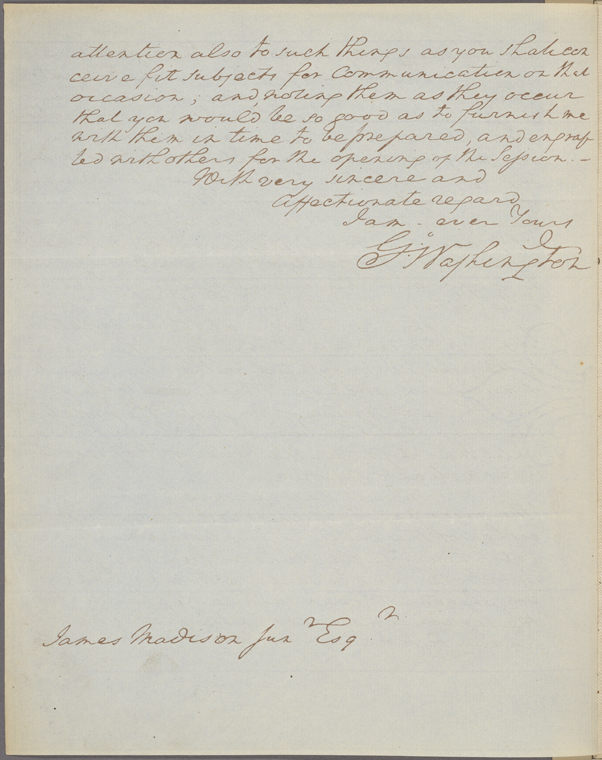 attention also to such things as you shall con
ceive fit subjects for Communication on that
occasion; and, noting them as they occur
that you would be so good as to furnish me
with them in time to be prepared, and engraf
ted with others for the opening of the Session.—
With very sincere and
Affectionate regard
I am - ever Yours
Go. Washington
James Madison Junr Esqr.